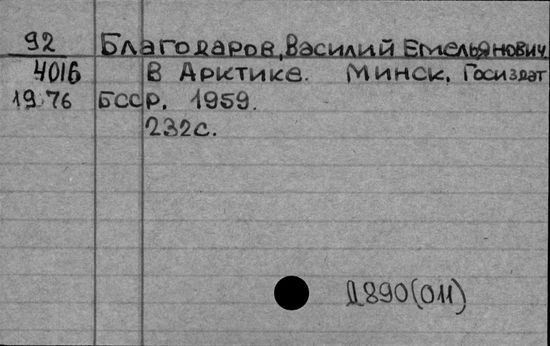 92 Благодаров, Василий Емельянович
4016 В Арктике. Минск, Госиздат
1976 БССР, 1959.
232с.
Д890(011)